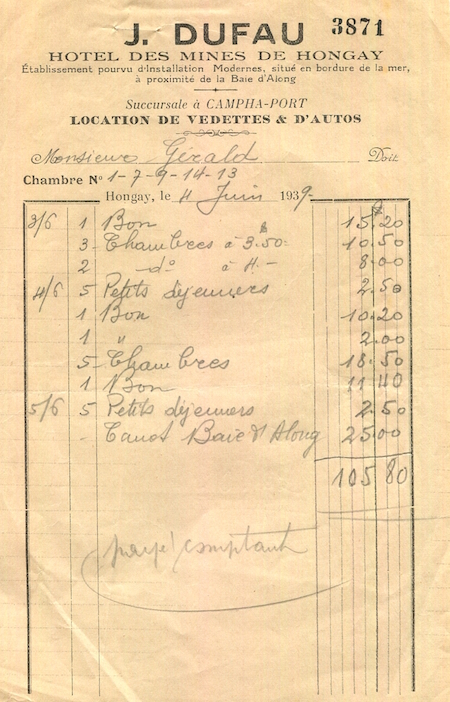 J. DUFAU 3871
HOTEL DES MINES DE HONGAY
Établissement pourvu d'Installation Modernes, situé en bordure de la mer,
à proximité de la Baie d'Along
Succursale à CAMPHA-PORT
LOCATION DE VEDETTES & D'AUTOS
Monsieur Gérald Doit
Chambre Nº 1-7-9-14-13
Hongay, le 4 Juin 1939-
3/6 1 Bon 15.20
3 Chambres à 3.50 10.50
2 -dº à 4.- 8.00
4/6 5 Petits déjeuners 2.50
1 Bon 10.20
1 " 2.00
5 Chambres 18.50
1 Bon 11.40
5/6 5 Petits déjeuners 2.50
- Canot Baie d'Along 25.00
105 80
payé comptant